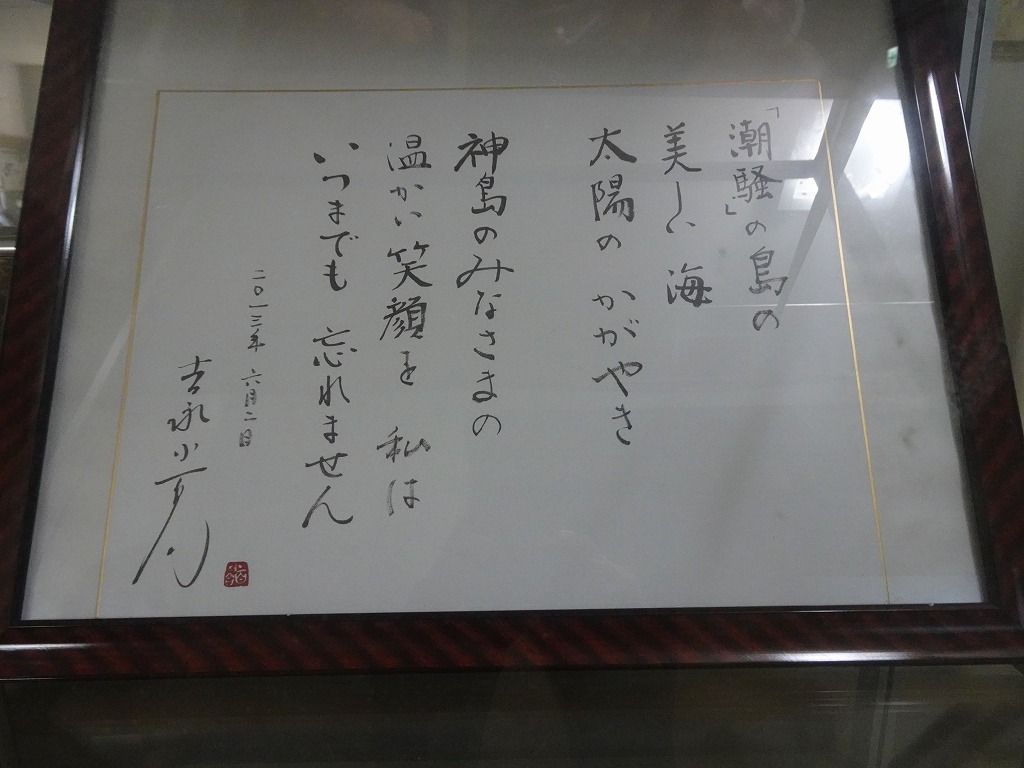 「潮騒」の島の
美しい海
太陽の かがやき
神島のみなさまの
温かい笑顔を 私は
いつまでも 忘れません
二〇一三年 六月二日
吉永小百合